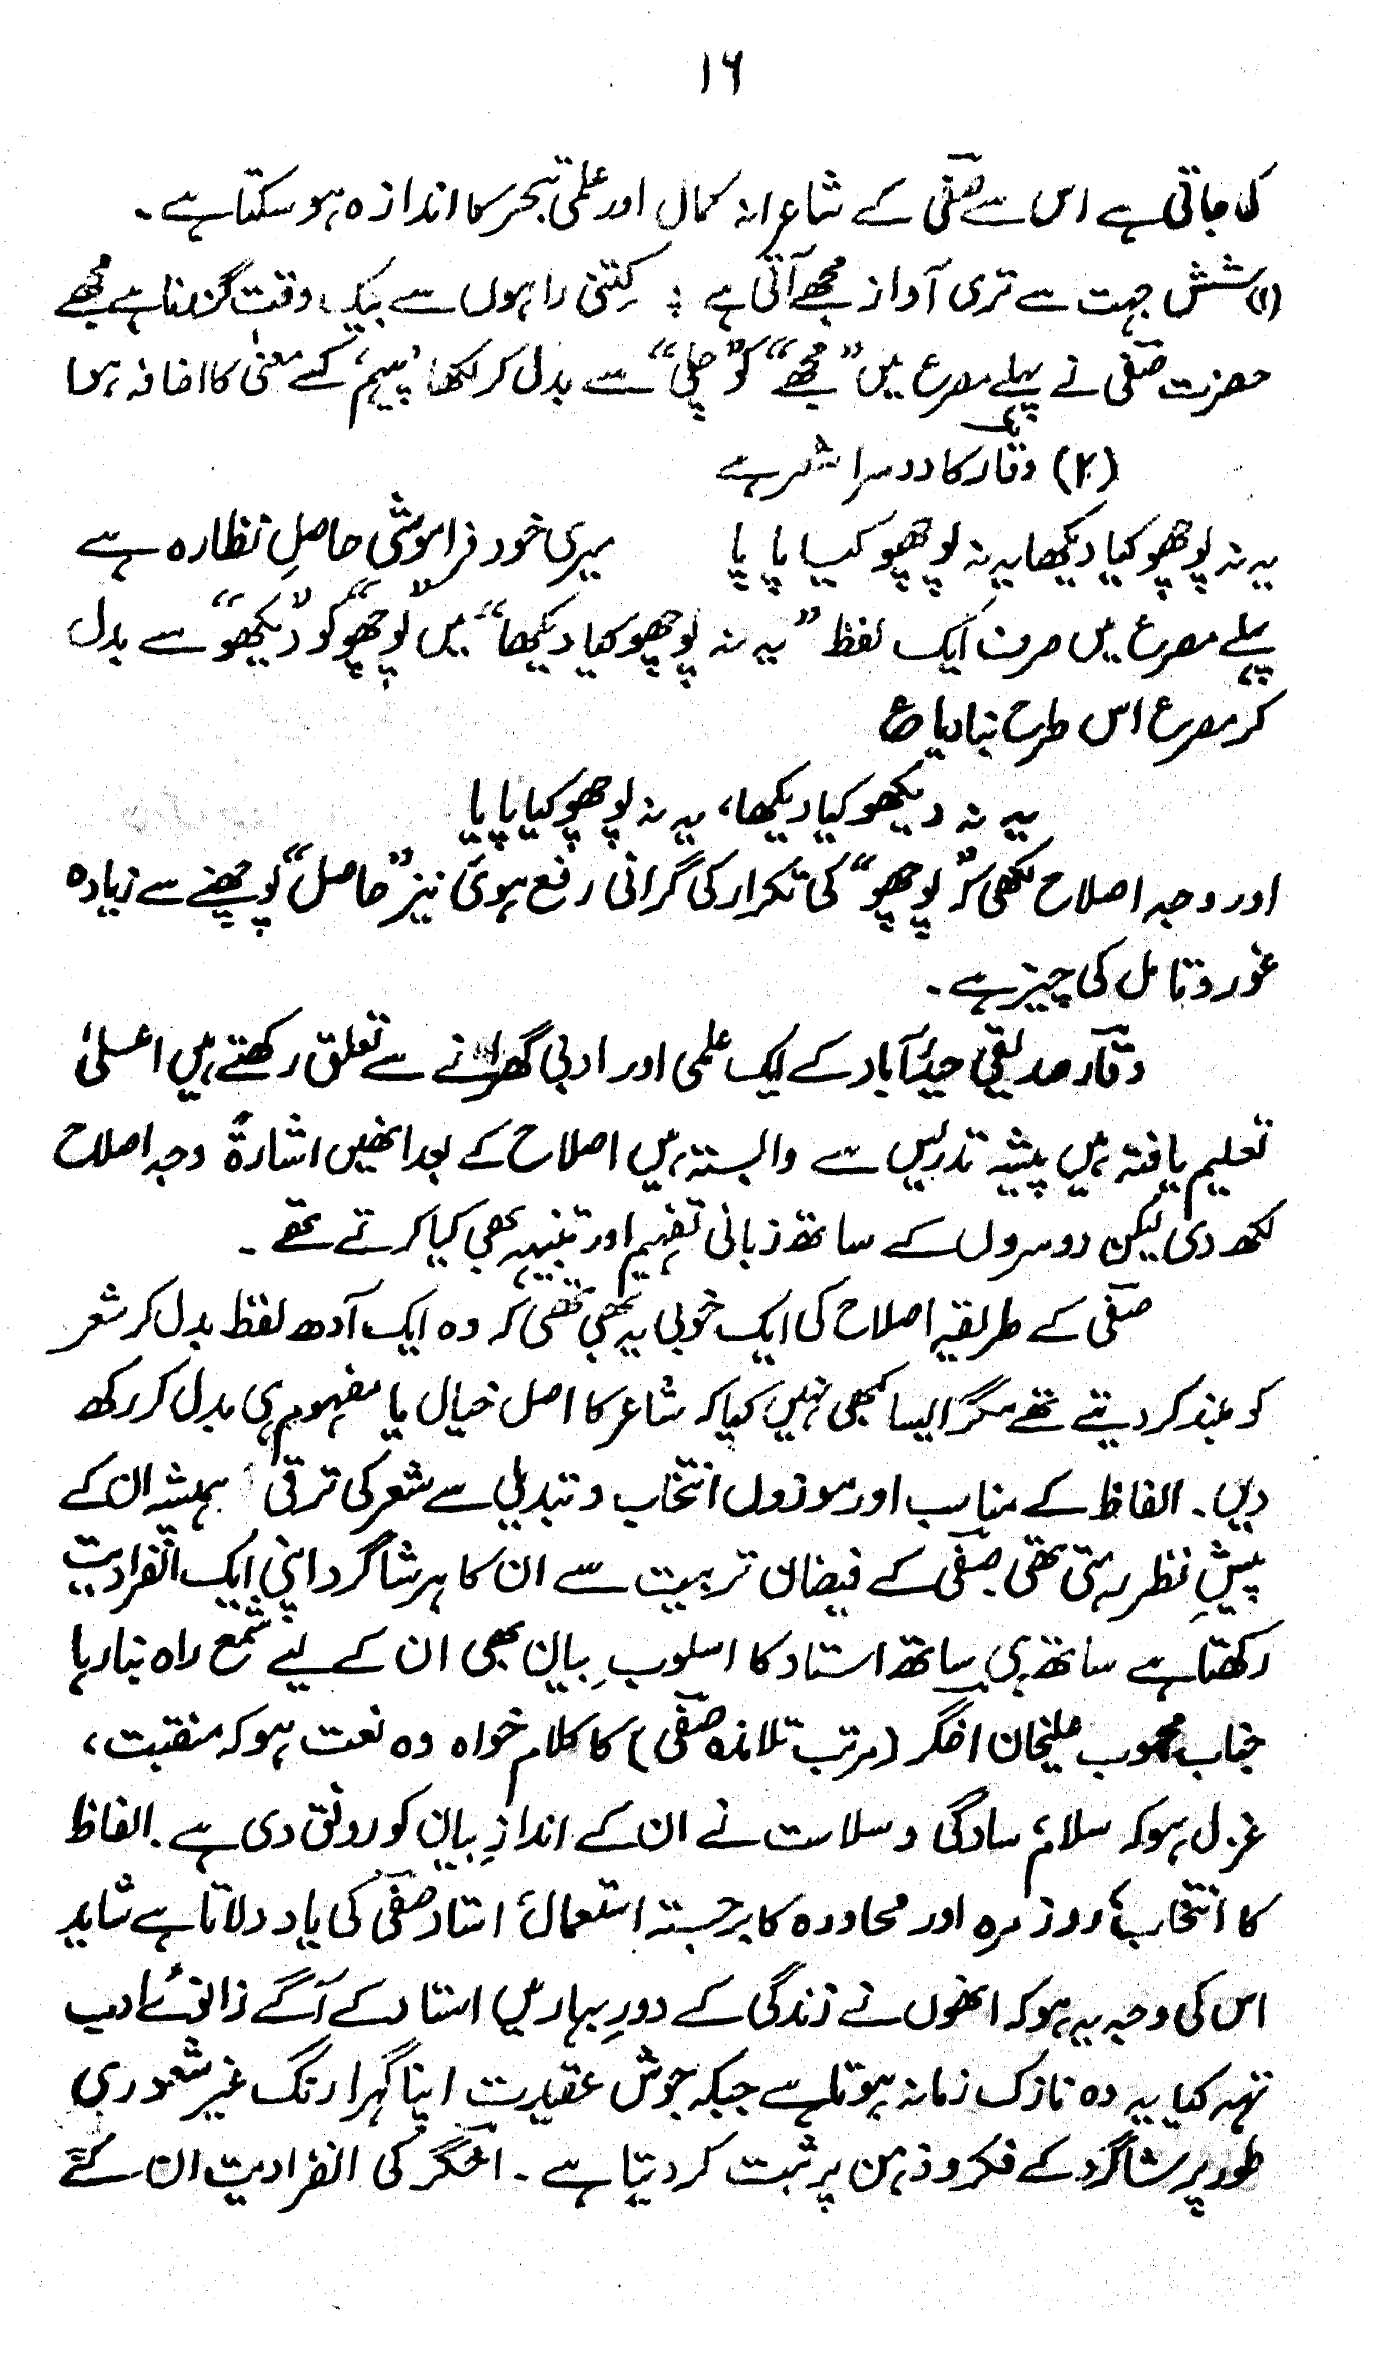 ۱۶
کی جاتی ہے اس سے صفی کے شاعرانہ کمال اور علمی تبحر کا اندازہ ہو سکتا ہے۔
(۱) شش جہت سے تری آواز مجھے آتی ہے ؛ کتنی راہوں سے بیک وقت گزرنا ہے مجھے
حضرت صفی نے پہلے مصرع میں ”مجھے“ کو ”چلی“ سے بدل کر لکھا ’پیہم‘ کے معنیٰ کا اضافہ ہوا
(۲) وقار کا دوسرا شعر ہے
یہ نہ پوچھو کیا دیکھا یہ نہ پوچھو کیا پایا میری خود فراموشی حاصلِ نظارہ ہے
پہلے مصرع میں صرف ایک لفظ ”یہ نہ پوچھو کیا دیکھا“ میں ”پوچھو“ کو ”دیکھو“ سے بدل
کر مصرع اس طرح بنا دیا ع
یہ نہ دیکھو کیا دیکھا، یہ نہ پوچھو کیا پایا
اور وجہ اصلاح لکھی کہ ”پوچھو“ کی تکرار کی گرانی رفع ہوئی نیز ”حاصل“ پوچھنے سے زیادہ
غور و تامل کی چیز ہے۔
وقار صدیقی حیدرآباد کے ایک علمی اور ادبی گھرانے سے تعلق رکھتے ہیں اعلیٰ
تعلیم یافتہ ہیں پیشہ تدریس سے وابستہ ہیں اصلاح کے بعد انھیں اشارۃً وجہ اصلاح
لکھ دی لیکن دوسروں کے ساتھ زبانی تفہیم اور تنبیہہ بھی کیا کرتے تھے۔
صفی کے طریقہ اصلاح کی ایک خوبی یہ بھی تھی کہ وہ ایک آدھ لفظ بدل کر شعر
کو بلند کر دیتے تھے مگر ایسا کبھی نہیں کیا کہ شاعر کا اصل خیال یا مفہوم ہی بدل کر رکھ
دیں۔ الفاظ کے مناسب اور موزوں انتخاب و تبدیلی سے شعر کی ترقی ہمیشہ ان کے
پیشِ نظر رہتی تھی صفی کے فیضان تربیت سے ان کا ہر شاگرد اپنی ایک انفرادیت
رکھتا ہے ساتھ ہی ساتھ استاد کا اسلوبِ بیان بھی ان کے لیے شمع راہ بنا رہا
جناب محبوب علیخان اخگر (مرتب تلامذہ صفی) کا کلام خواہ وہ نعت ہو کہ منقبت،
غزل ہو کہ سلام، سادگی و سلاست نے ان کے اندازِ بیان کو رونق دی ہے۔ الفاظ
کا انتخاب، روزمرہ اور محاورہ کا برجستہ استعمال، استاد صفی کی یاد دلاتا ہے شاید
اس کی وجہ یہ ہو کہ انھوں نے زندگی کے دورِ بہار میں استاد کے آگے زانوئے ادب
تہہ کیا یہ وہ نازک زمانہ ہوتا ہے جبکہ جوش عقیدت اپنا گہرا رنگ غیر شعوری
طور پر شاگرد کے فکر و ذہن پر ثبت کر دیتا ہے۔ اخگر کی انفرادیت ان کے